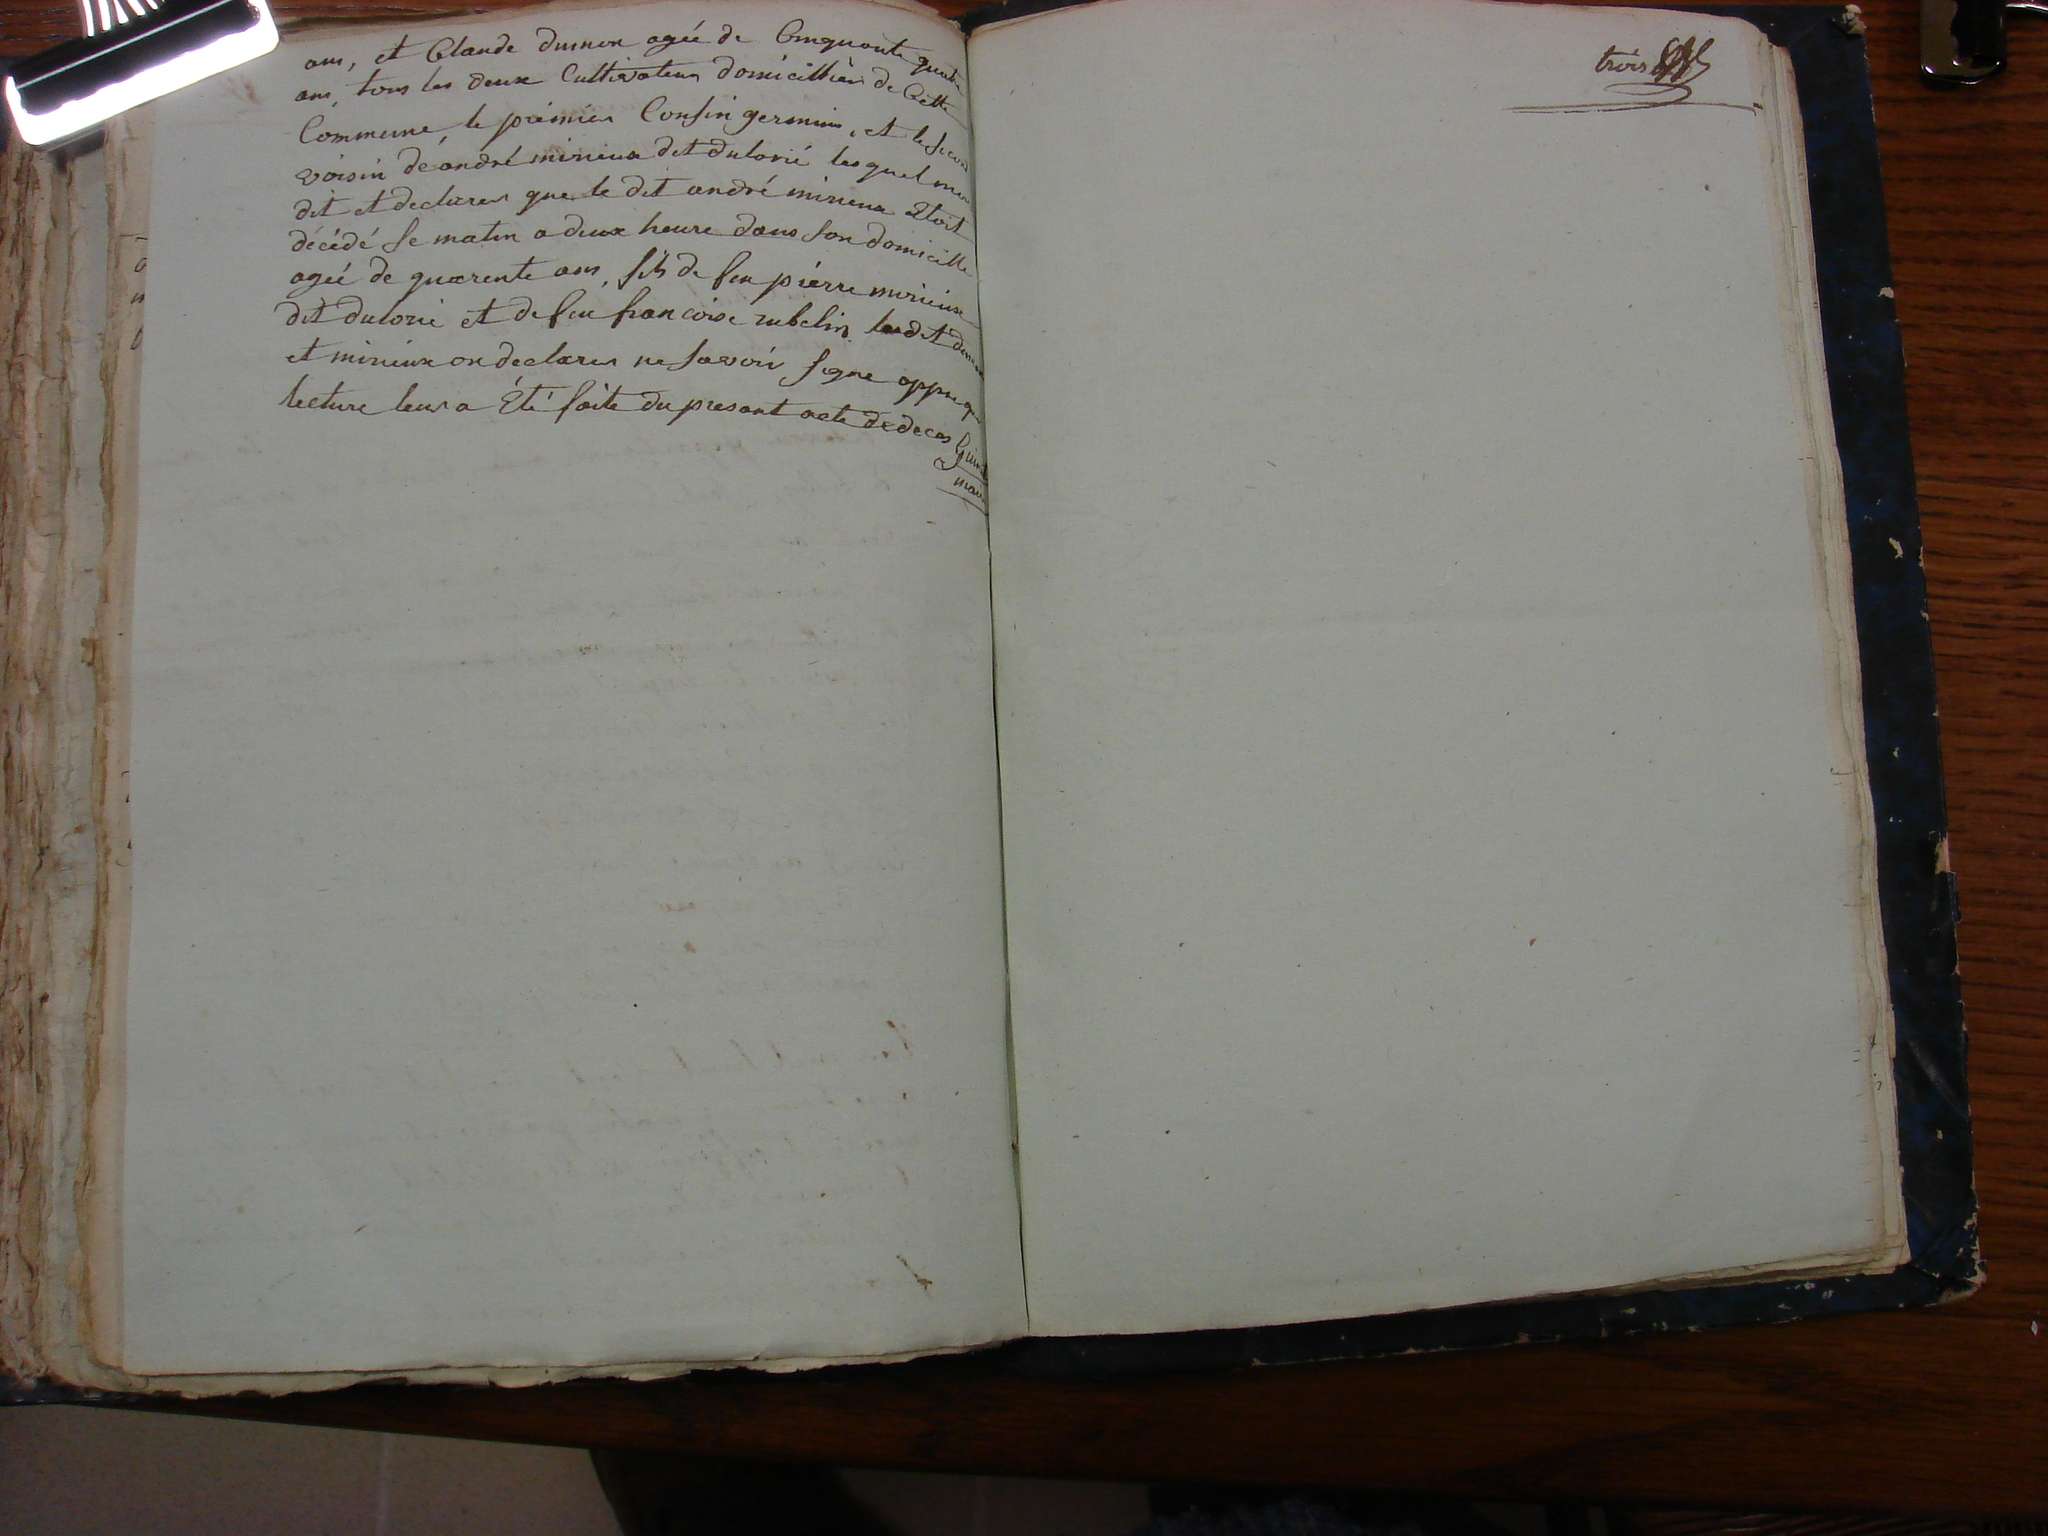 ans, et Claude dumon agée de Cinquante quatre
ans, tous les deux Cultivateur domicilliés de Cette
Commune, le prémier Cousin germain, et le second
voisin de andré mirieux dit dulorié lesquel mon
dit et declarer que le dit andré mirieux Etoit
décédé se matin a deux heure dans son domicille
ageé de quarente ans, fils de feu piérre mirieux
dit dulorié et de feu francoise rubelin. lesdit dumon
et mirieux on declarer ne savoir signe appres que
lecture leur a Été faite du presant acte de deces
maire
trois